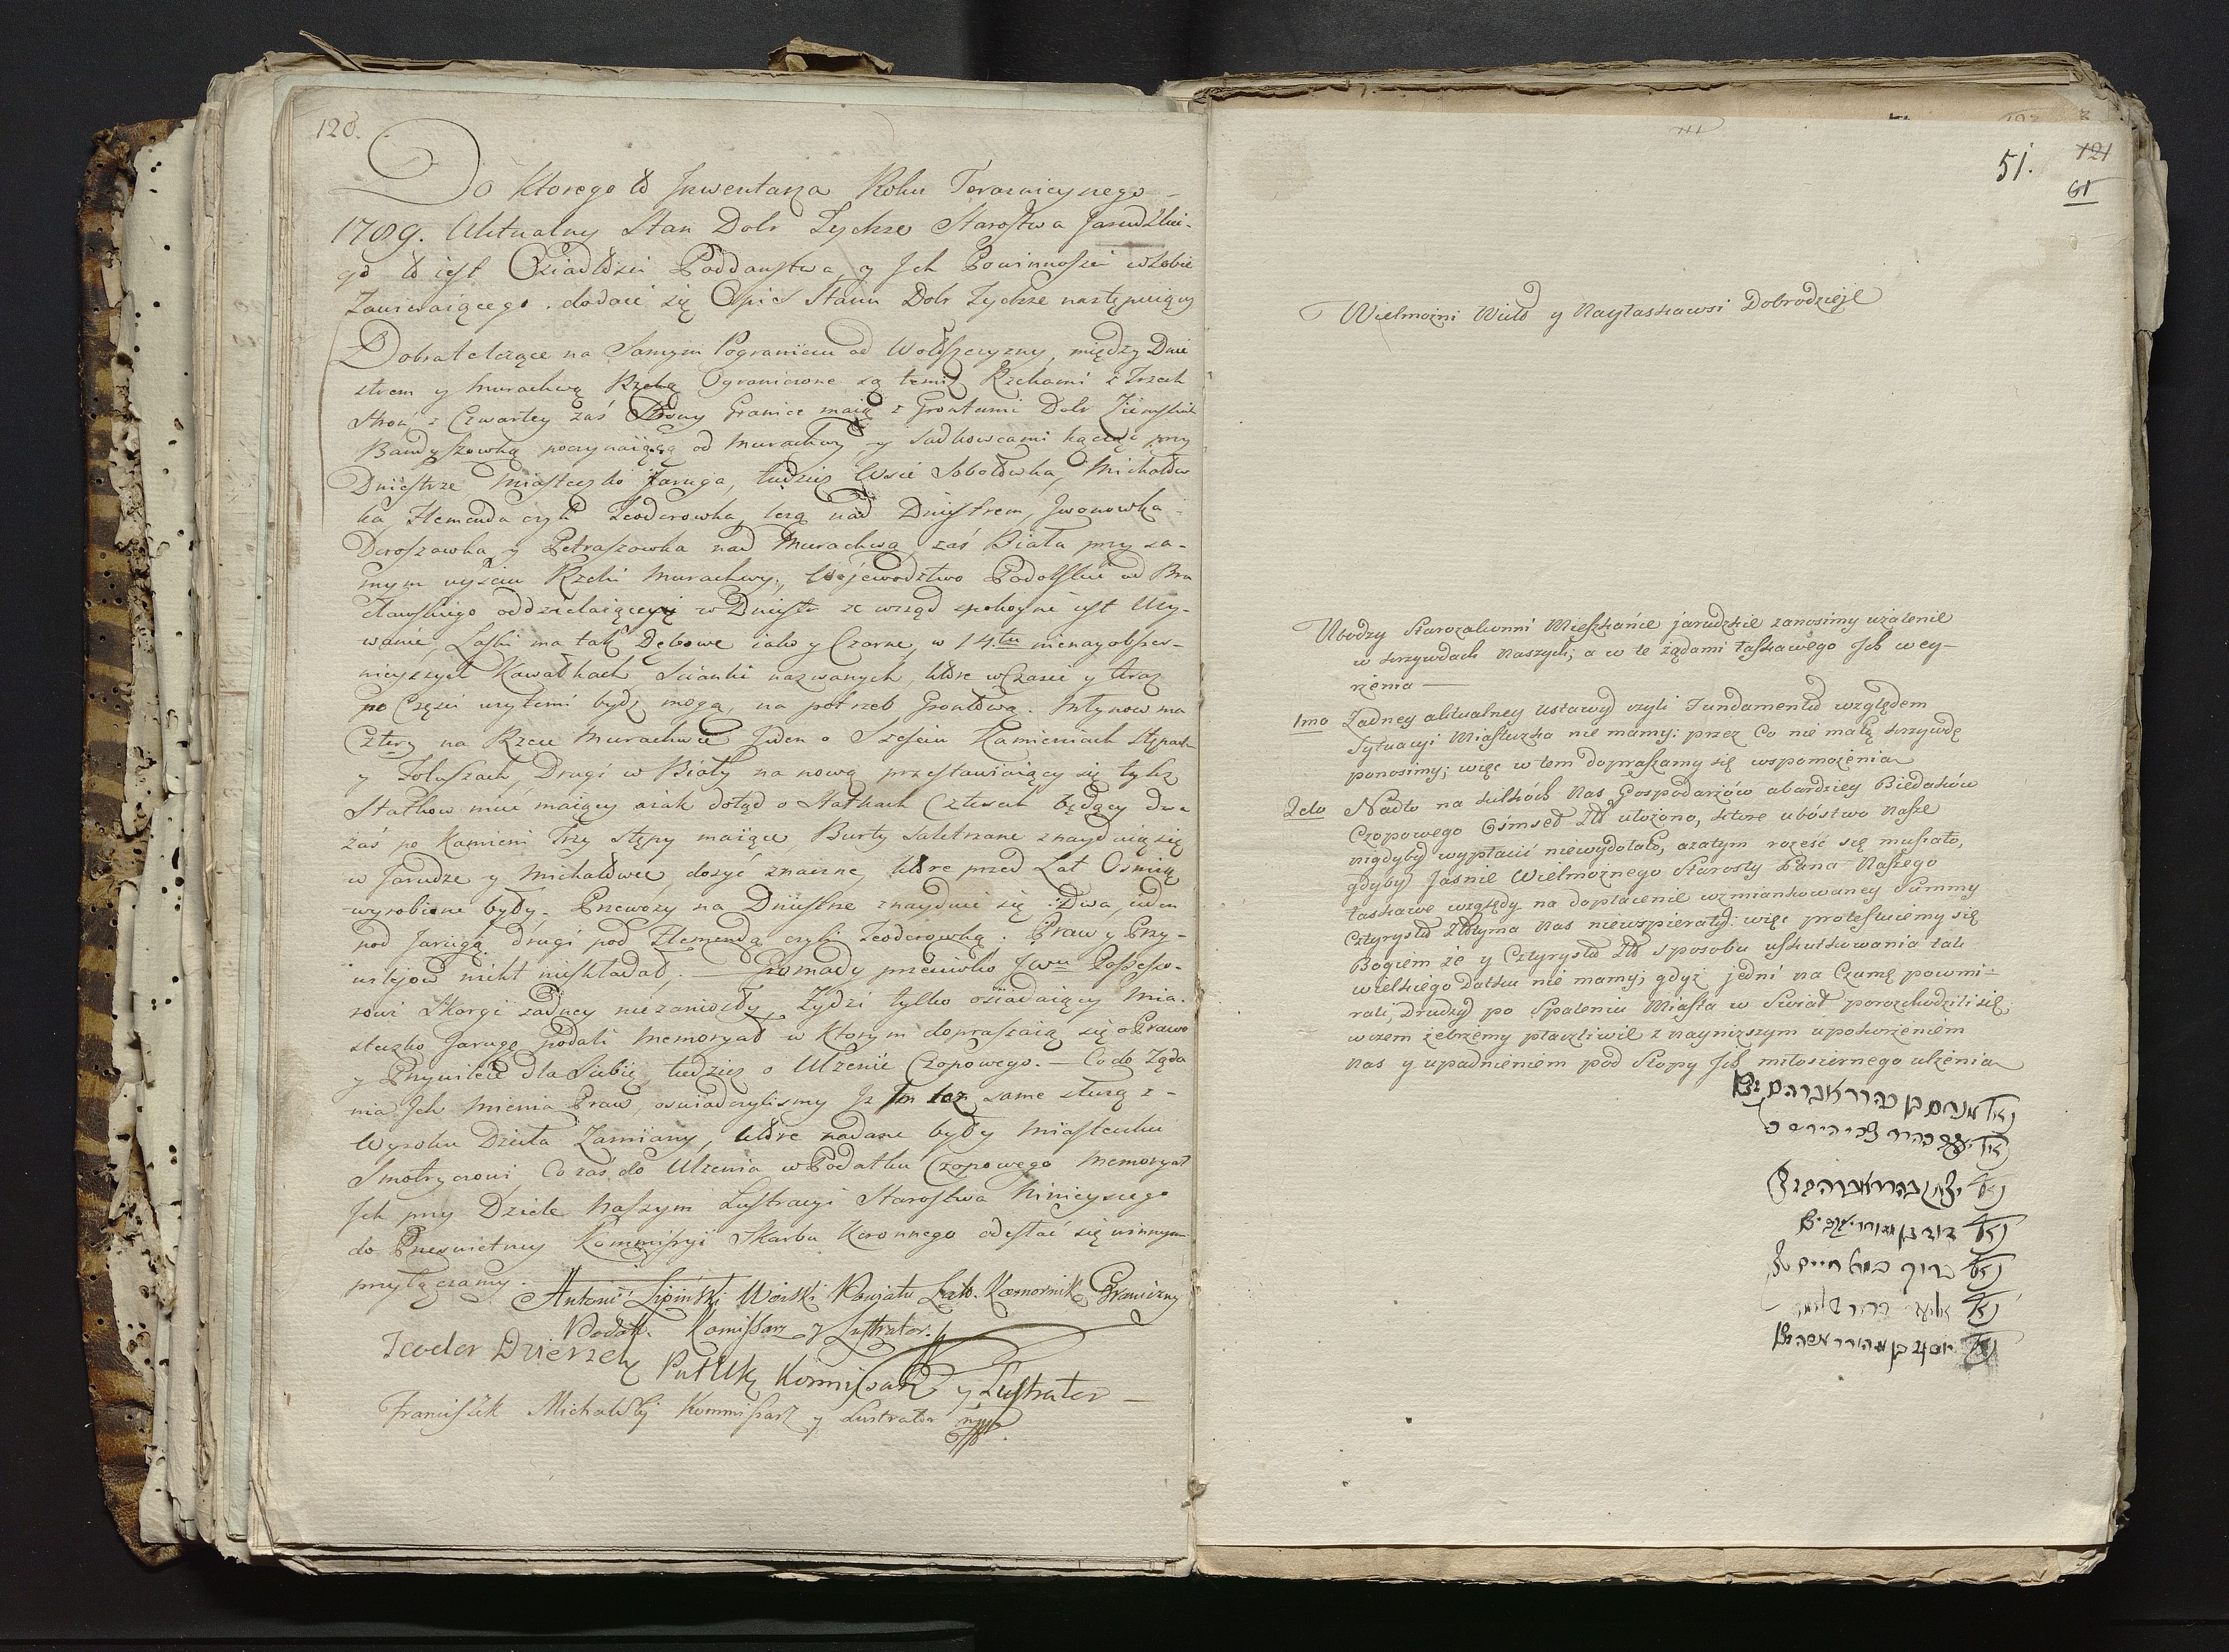 120.
Do ktorego to Inwentarza Roku Teraznieyszego
1789. Aktualny Stan Dobr Tychże Starostwa Jarudzkie-
go to iest Osiadłości Poddaństwa, y Ich Powinności w Sobie
Zawieraiącego. dodaie się Opis Stanu Dobr Tychże następuiący
Dobra te leżące na Samym Pograniczu od Wołoszczyzny, między Dnie
strem y Murachwą Rzeką Ograniczone są temiż Rzekami z Trzech
Stron z Czwartey zaś Strony Granice maią z Gruntami Dobr Ziemskich
Bandyszowką poczynaiącą od Murachwy y Sadkowcami kącząc przy
Dniestrze Miasteczko Jaruga, tudzież Wsie Sobotowka, Michałow
ka, Flemenda czyli Teodorowka, leżą nad Dniestrem, Iwonowka
Doroszowka y Petraszowka nad Murachwą, zaś Biała przy sa-
mym uyściu Rzeki Murachwy, Wojewodztwo Podolskie od Bra
cławskiego oddzielaiącey w Dniestr ze wsząd spokoyne iest Uży-
wanie, Laski ma tak Dębowe iako y Czarne, w 14.tu nienayobszer-
nieyszych Kawałkach Scianki nazwanych, które w Czasie y teraz
po Części użytemi bydź mogą, na potrzeb Gruntową. Młynow ma
Cztery na Rzece Murachwie Jeden o Sześciu Kamieniach Stępach
y Foluszach, Drugi w Biały na nową przestawiaiący się tyleż
Statkow mieć maiący a iak dotąd o Statkach Czterech będący dwa
zaś po Kamieni Trzy stępy maiące, Burty Saletrzane znayduią się
w Jarudze y Michałowce, dosyć znaczne, które przed Lat Osmią
wyrobione były. Przewozy na Dniestrze znayduie się Dwa, ieden
pod Jarugą drugi pod Flemendą czyli Teodorowką. Praw y Przy-
wilejow nicht nieskładał. — Gromady przeciwko JWmu Possesso-
rowi Skargi zadney niezaniosły, Żydzi tylko osiadaiący Mia-
steczko Jarugę podali Memoryał w ktorym dopraszaią się o Prawo
y Przywileie dla Siebie, tudzież o Ulżenie Czopowego. — Co do Żąda
nia Ich Mienia Praw, oswiadczylismy Iż Im też same służą z
Wyroku Dzieła Zamiany, które nadane były Miasteczku
Smotryczowi, Co zaś do Ulżenia w Podatku Czopowego Memoryał
Ich przy Dziele Naszym Lustracyi Starostwa Ninieyszego
do Prześwietney Kommissyi Skarbu Koronnego odesłać się winnym
przyłączamy.
Antoni Lipiński Woiski Powiatu Latt. Komornik Graniczny
Podol. Komissarz y Lustrator.
Teodor Dzierzek Komissarz y Lustrator
Franciszek Michalski Kommissarz y Lustrator mpp
121
51.
61
Wielmożni Wielo y Nayłaskawsi Dobrodzieje
Ubodzy Starozakonni Mieszkańce jarudzkie zanosimy użalenie
w krzywdach Naszych; a w te żądami łaskawego Ich wey-
rżenia —
1mo Żadney aktualney Ustawy czyli Fundamentu względem
Sytuacyi Miasteczka nie mamy: przez Co nie małą krzywdę
ponosimy; więc w tem dopraszamy się wspomożenia
2do Nadto na kilkóch Nas Gospodarzów abardziey Biedaków
Czopowego Ośmset Złł ułożono, które ubóstwo Nasze
nigdyby wypłacić niewydołało, azatym roześć się musiało,
gdyby Jaśnie Wielmożnego Starosty Pana Naszego
łaskawe względy na dopłacenie wzmiankowaney Summy
Cztyrysto Złłtyma Nas niewspierały: więc protestuiemy się
Bogiem że y Cztyrysto Złł sposobu uskutkowania tak
wielkiego datku nie mamy; gdyż jedni na Czumę powmi-
rali, Drudzy po Spaleniu Miasta w Swiat porozchodzili się,
wczem żebrzemy płaczliwie z nayniższym upokorzeniem
Nas y upadnieniem pod Stopy Ich miłosiernego ulżenia
נאו' מנחם בן כהרר אברהם ז"ל
נאו' יצחק בהרר אברהם ז"ל
נאו' דוד בן
נאו' ברוך במהו חיים
נאו' יוסף בן מהורר משה ז"ל